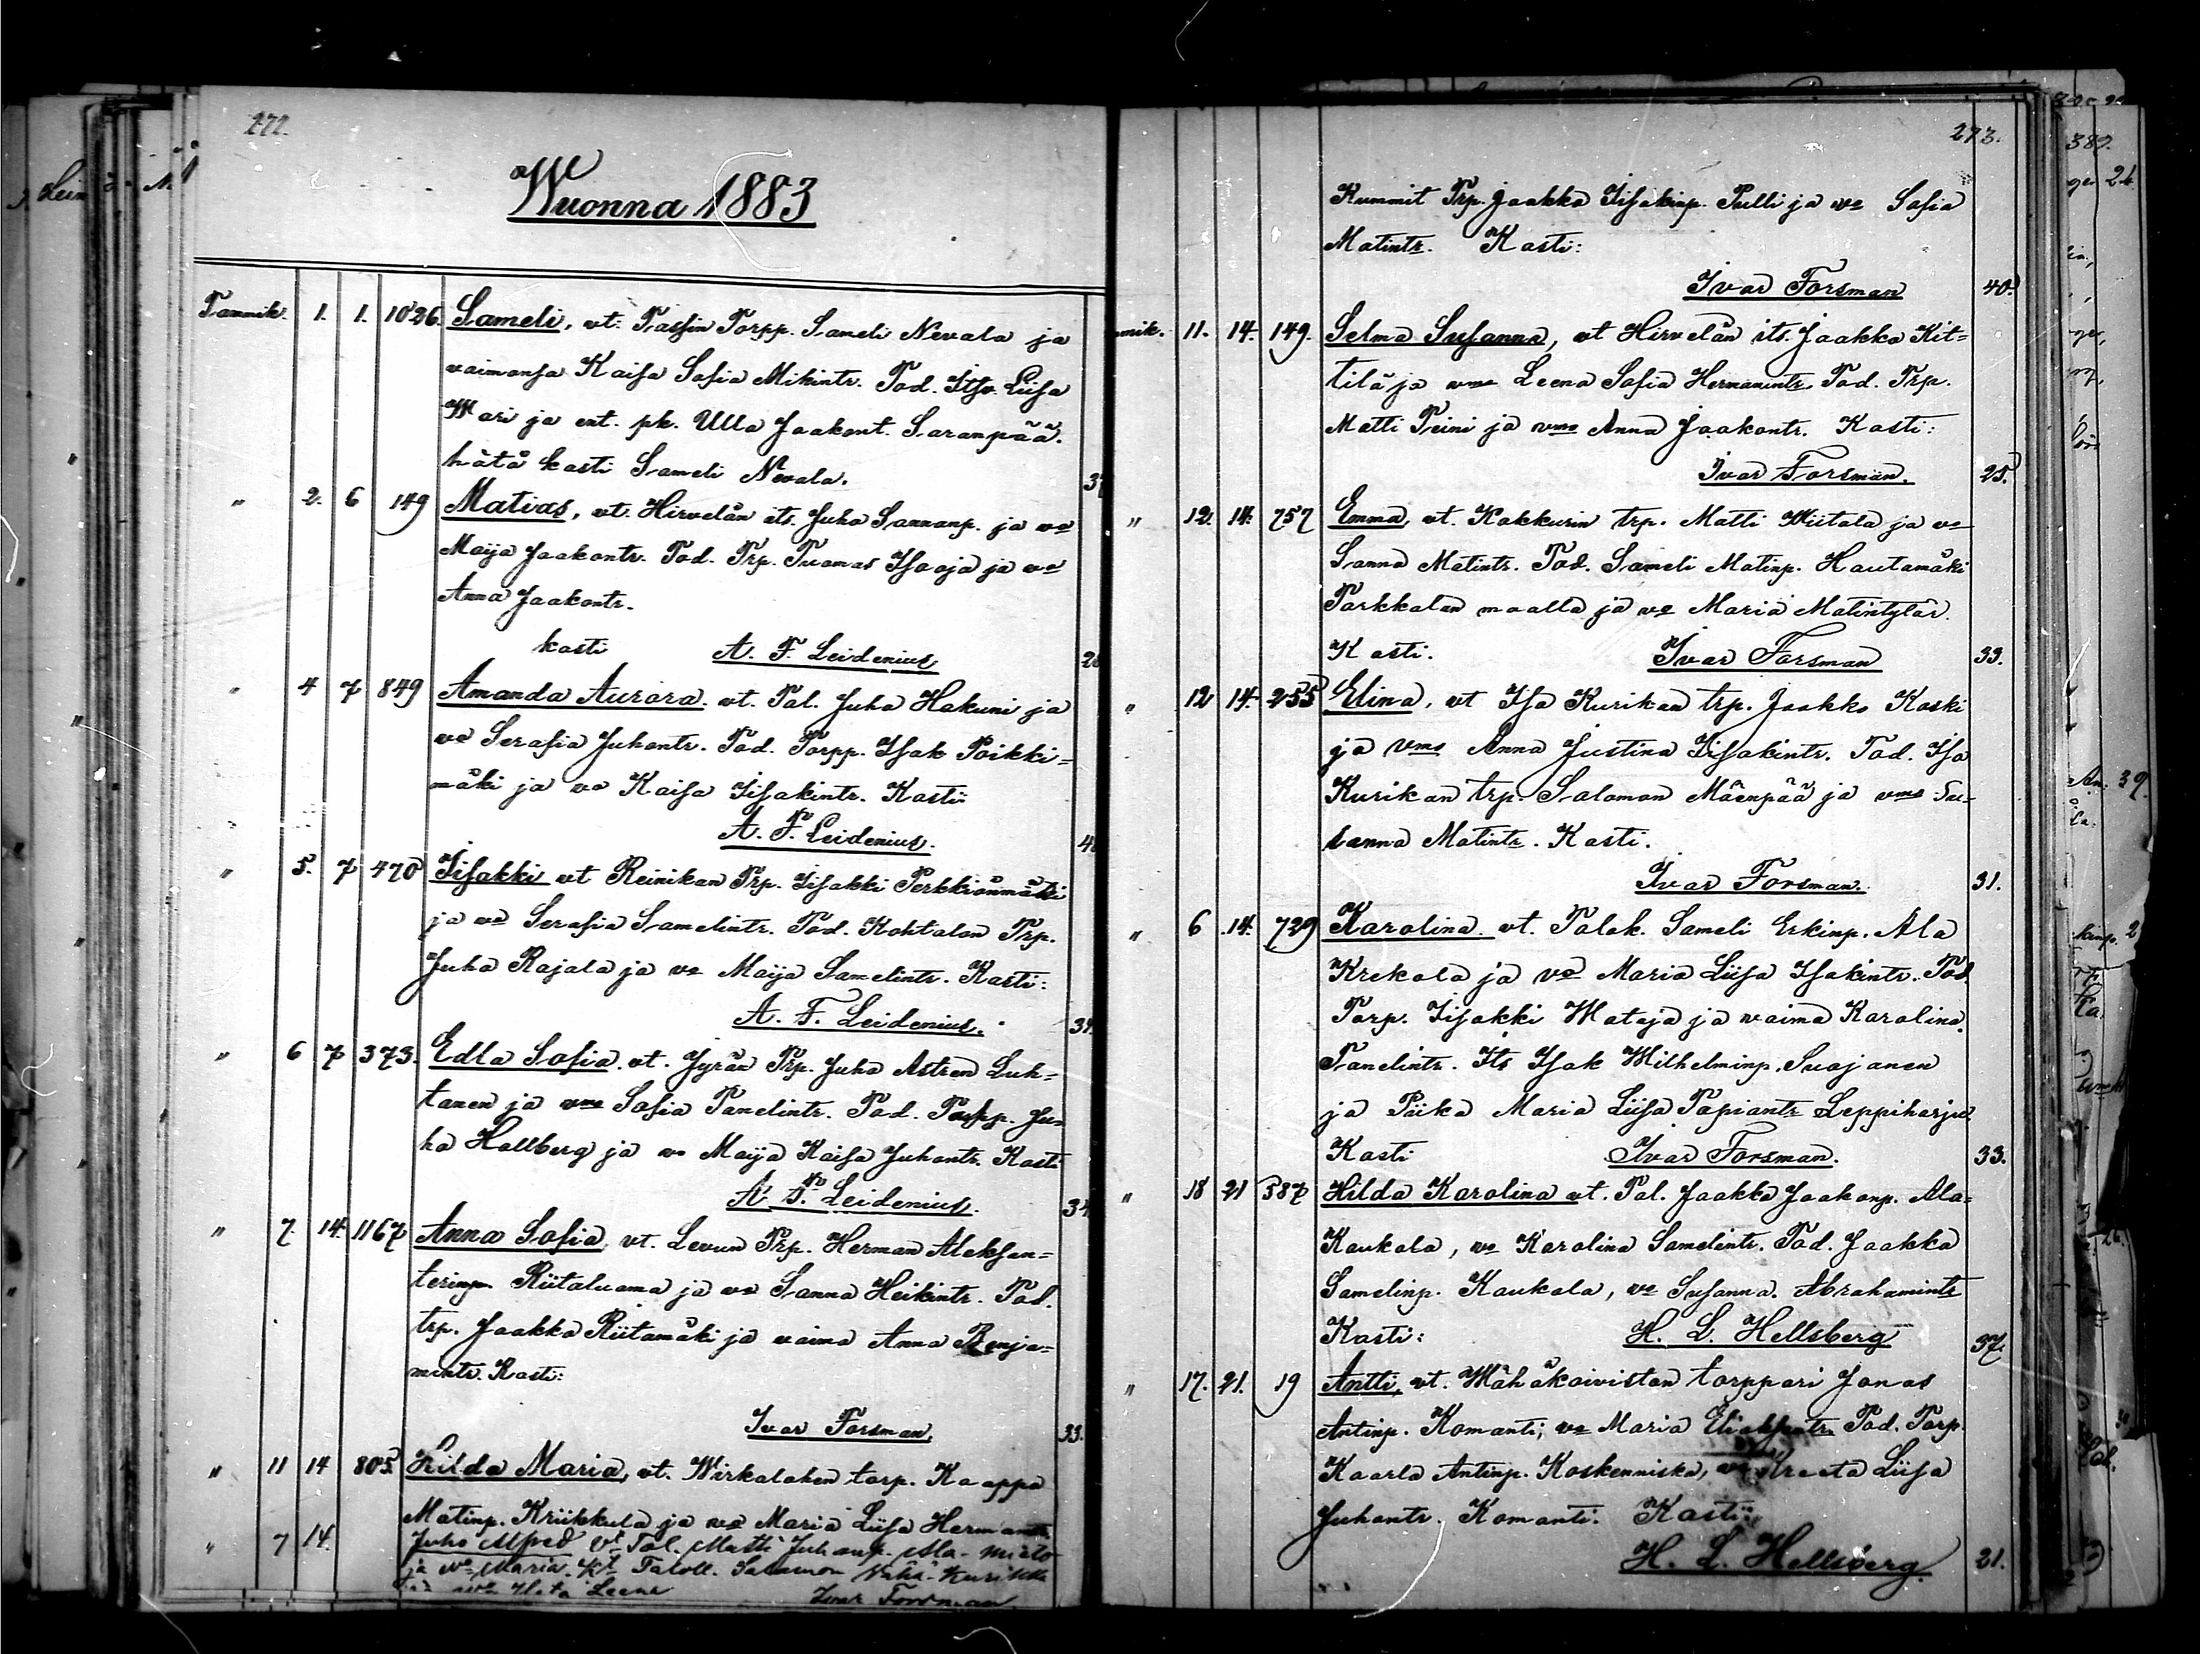 272.
Wuonna 1883
Tammik. 1. 1. 1026. Sameli, vt. Passin Torpp. Sameli Nevala ja
vaimonsa Kaisa Sofia Mikintr. Tod. Itsv. Liisa
Wari ja ent. pk. Ulla Jaakont. Saranpää.
hätä kasti Sameli Nevala.
" 2. 6 149 Matias, vt. Hirvelän its. Juho Sannanp. ja vo
Maija Jaakontr. Tod. Trp. Tuomas Isooja ja vo
Anna Jaakontr.
kasti A. F. Leidenius
" 4 7 849 Amanda Aurora. vt. Tal. Juha Hakuni ja
vo Serafia Juhontr. Tod. Torpp. Isak Poikki=
mäki ja vo Kaisa Iisakintr. Kasti
A. F. Leidenius.
" 5. 7 470 Iisakki vt Reinikan Trp. Iisakki Perkkiönmäki
ja vo Serafia Samelintr. Tod. Kohtalan Trp.
Juha Rajala ja vo Maija Samelintr. Kasti:
A. F. Leidenius.
" 6 7 373. Edla Sofia. vt. Jyrän Trp. Juha Astren Luh=
tanen ja vmo Sofia Tanelintr. Tod. Torpp. Ju=
ha Hallberg ja vo Maija Kaisa Juhontr. Kasti
A. F. Leidenius.
" 7. 14. 1167 Anna Sofia, vt. Levun Trp. Herman Aleksan=
terinp. Riitaluoma ja vo Sanna Heikintr. Tod.
trp. Jaakka Riitamäki ja vaimo Anna Benja=
mintr. Kasti:
Ivar Forsman. 33.
" 11 14 805. Hilda Maria, vt. Wirkalahen torp. Kaappo
Matinp. Kriikkula ja vo Maria Liisa Hermantr
" 7 14. Juho Alfred vt Tal. Matti Juhanp. Ala-Mieto
ja vo Maria. Kt Taloll. Salomon Vähä-Kurikka
Leena Ivar Forsman
273.
Kummit Trp. Jaakko Iisakinp. Pulli ja vo Sofia
Matintr. Kasti:
Ivar Forsman 40.
mik. 11. 14. 149. Selma Susanna, vt Hirvelän its. Jaakko Kit=
tilä ja vmo Leena Sofia Hermanintr. Tod. Trp.
Matti Peini ja vmo Anna Jaakontr. Kasti:
Ivar Forsman. 25.
" 12. 14. 757 Emma, vt. Kakkurin trp. Matti Wiitala ja vo
Sanna Matintr. Tod. Sameli Matinp. Hautamäki
Parkkalan maalla ja vo Maria Matintytär.
Kasti. Ivar Forsman 33.
" 12 14. 255 Elina, vt Iso Kurikan trp. Jaakko Koski
ja vmo Anna Justina Iisakintr. Tod. Iso
Kurikan trp. Salomon Mäenpää ja vmo Su=
sanna Matintr. Kasti.
Ivar Forsman. 31.
" 6 14. 729 Karolina. vt. Talok. Sameli Erkinp. Ala
Krekola ja vo Maria Liisa Isakintr. Tod.
Torp. Iisakki Mataja ja vaimo Karolina
Tanelintr. Its Isak Wilhelminp. Luojanen
ja Piika Maria Liisa Tapiantr Leppiharju.
Kasti Ivar Forsman. 33.
" 18 21 587 Hilda Karolina vt. Tal. Jaakko Jaakonp. Ala=
Kaukola, vo Karolina Samelintr. Tod. Jaakko
Samelinp. Kaukola, vo Susanna. Abrahamintr
Kasti: H. L. Hellsberg 37.
" 17. 21. 19 Antti, vt. Wähäkoiviston torppari Jonas
Antinp. Komanti, vo Maria Tod. Torp.
Kaarlo Antinp. Koskenniska, vo Kreeta Liisa
Juhontr. Komanti. Kasti:
H. L. Hellsberg. 21.